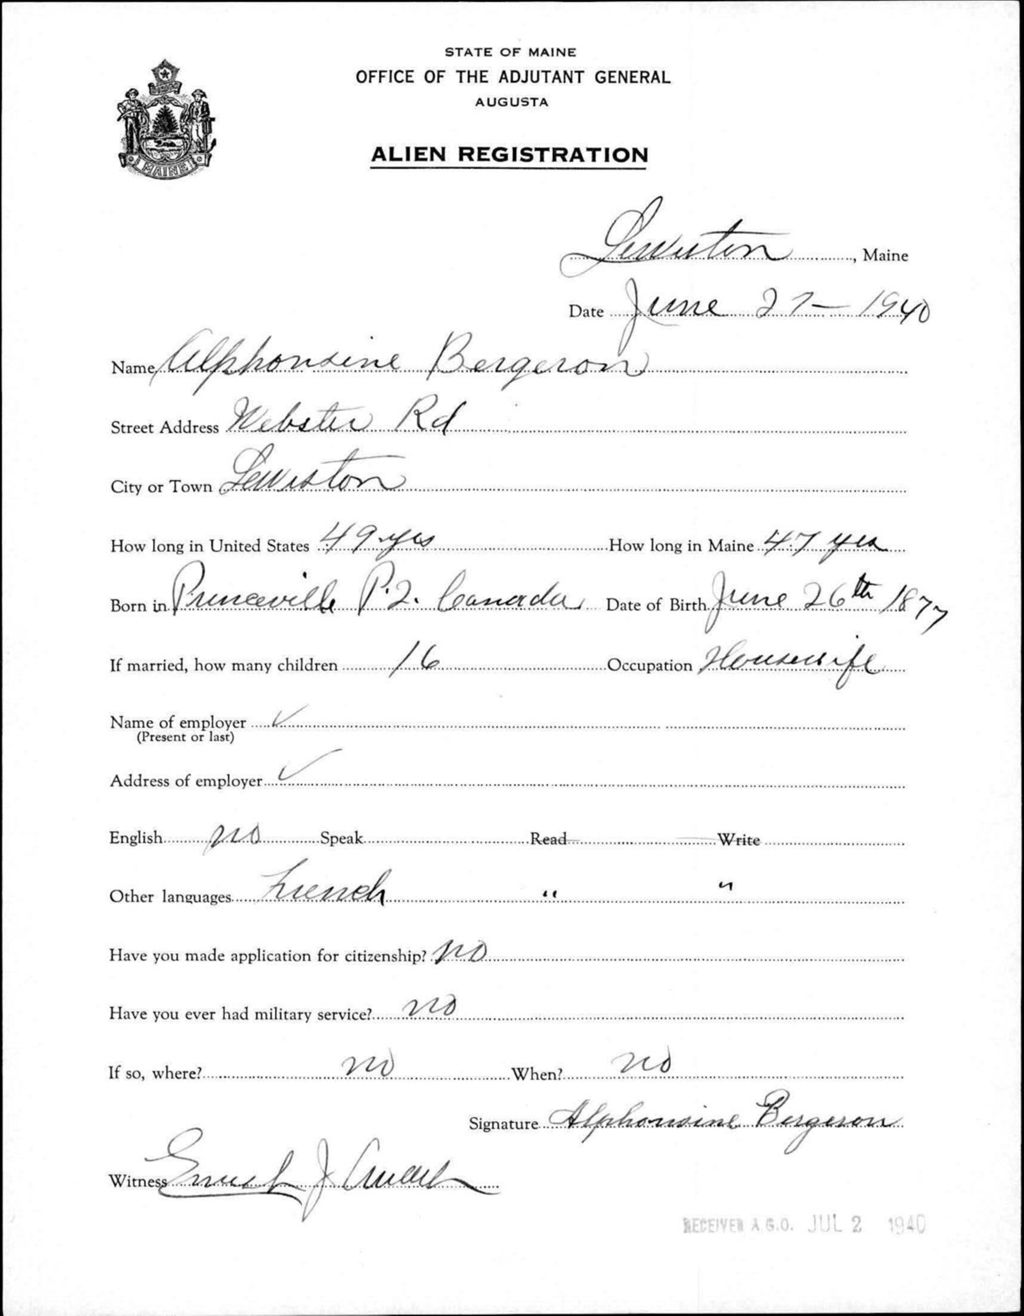 STATE OF MAINE
OFFICE OF THE ADJUTANT GENERAL
AUGUSTA
ALIEN REGISTRATION
MAINE
Lewiston, Maine
Date June 27 - 1940
Name Alphonsine Bergeron
Street Address Webster Rd
City or Town Lewiston
How long in United States 49 yrs How long in Maine 47 yrs
Born in Princeville P.Q. Canada Date of Birth June 26th 1877
If married, how many children 16 Occupation Housewife
Name of employer ✓
(Present or last)
Address of employer ✓
English no Speak Read Write
Other languages French " "
Have you made application for citizenship? no
Have you ever had military service? no
If so, where? no When? no
Signature Alphonsine Bergeron
Witness J
RECEIVED A.G.O. JUL 2 1940